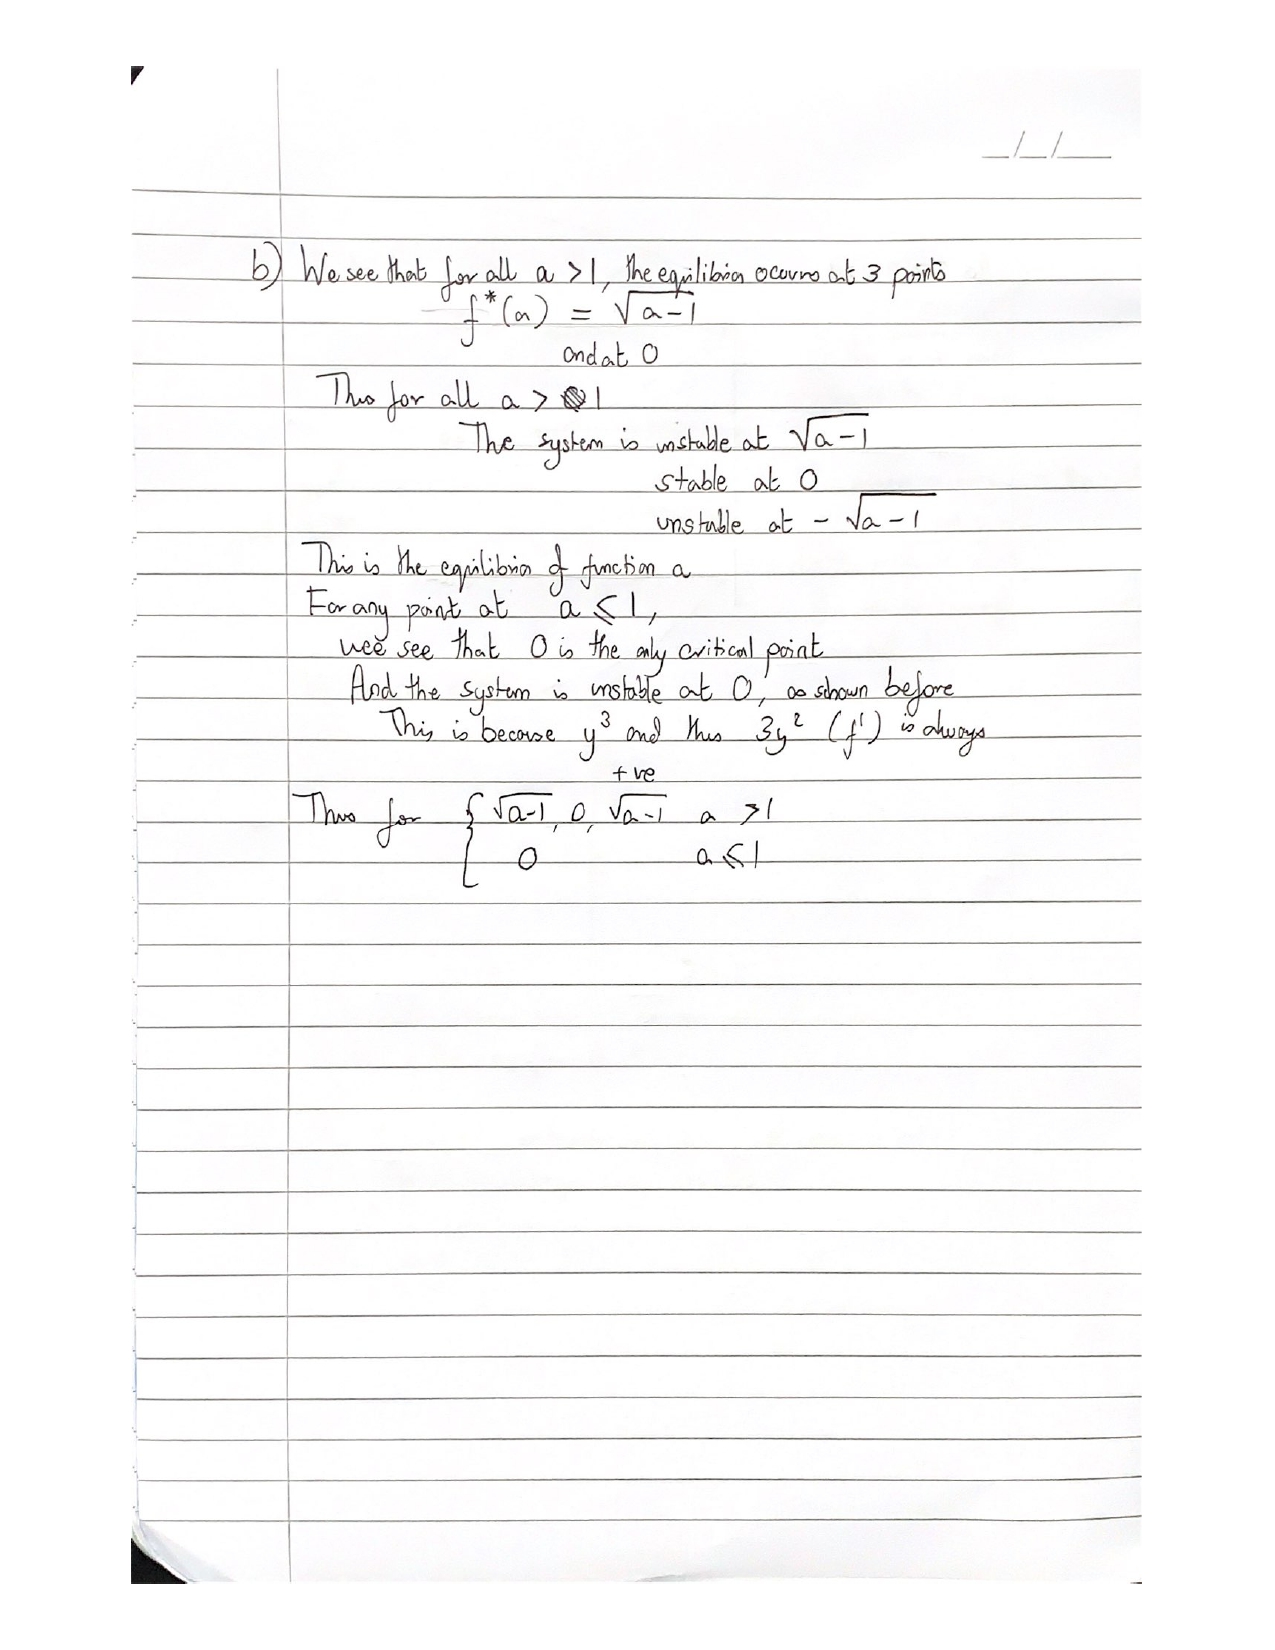 _/_/__
b) We see that for all a > 1, the equilibria occurs at 3 points
f*(a) = √a-1
and at 0
Thus for all a > 1
The system is unstable at √a-1
stable at 0
unstable at - √a-1
This is the equilibria of function a
For any point at a ≤ 1,
wee see that 0 is the only critical point
And the system is unstable at 0, as shown before
This is because y³ and thus 3y² (f') is always
+ve
Thus for { √a-1, 0, √a-1 a > 1
0 a ≤ 1